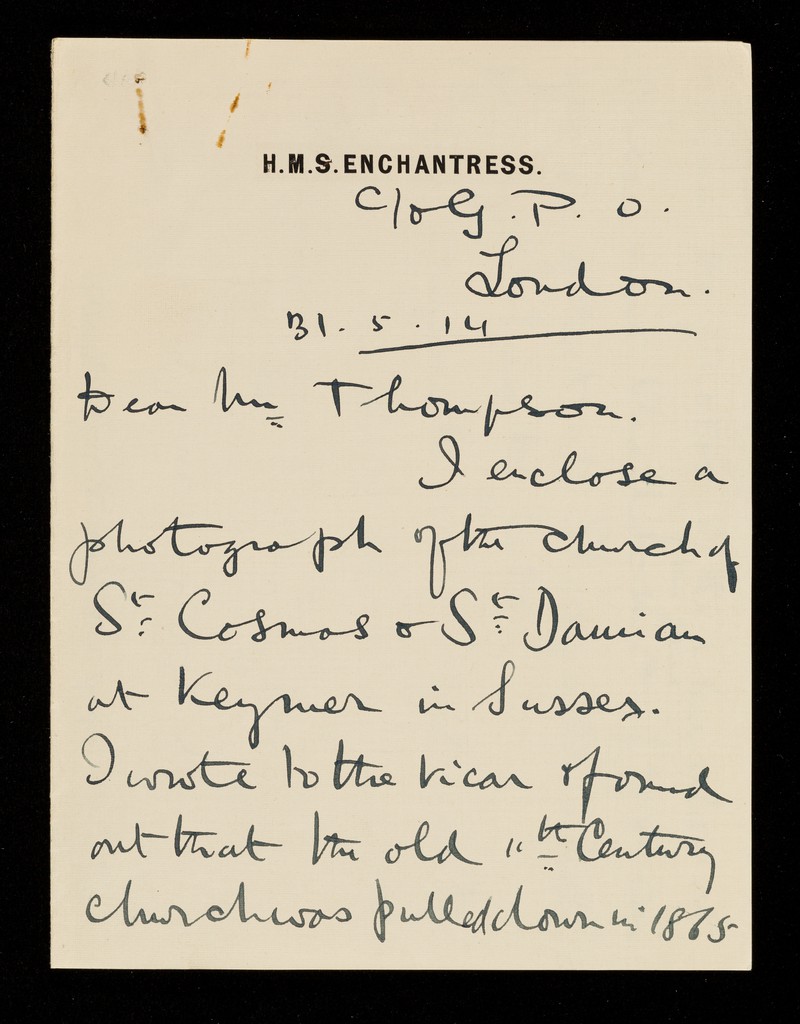 H.M.S. ENCHANTRESS.
C/o G. P. O.
London.
31. 5. 14
Dear Mr Thompson.
I enclose a
photograph of the church of
St Cosmos & St Damian
at Keymer in Sussex.
I wrote to the vicar & found
out that the old 11th Century
church was pulled down in 1865